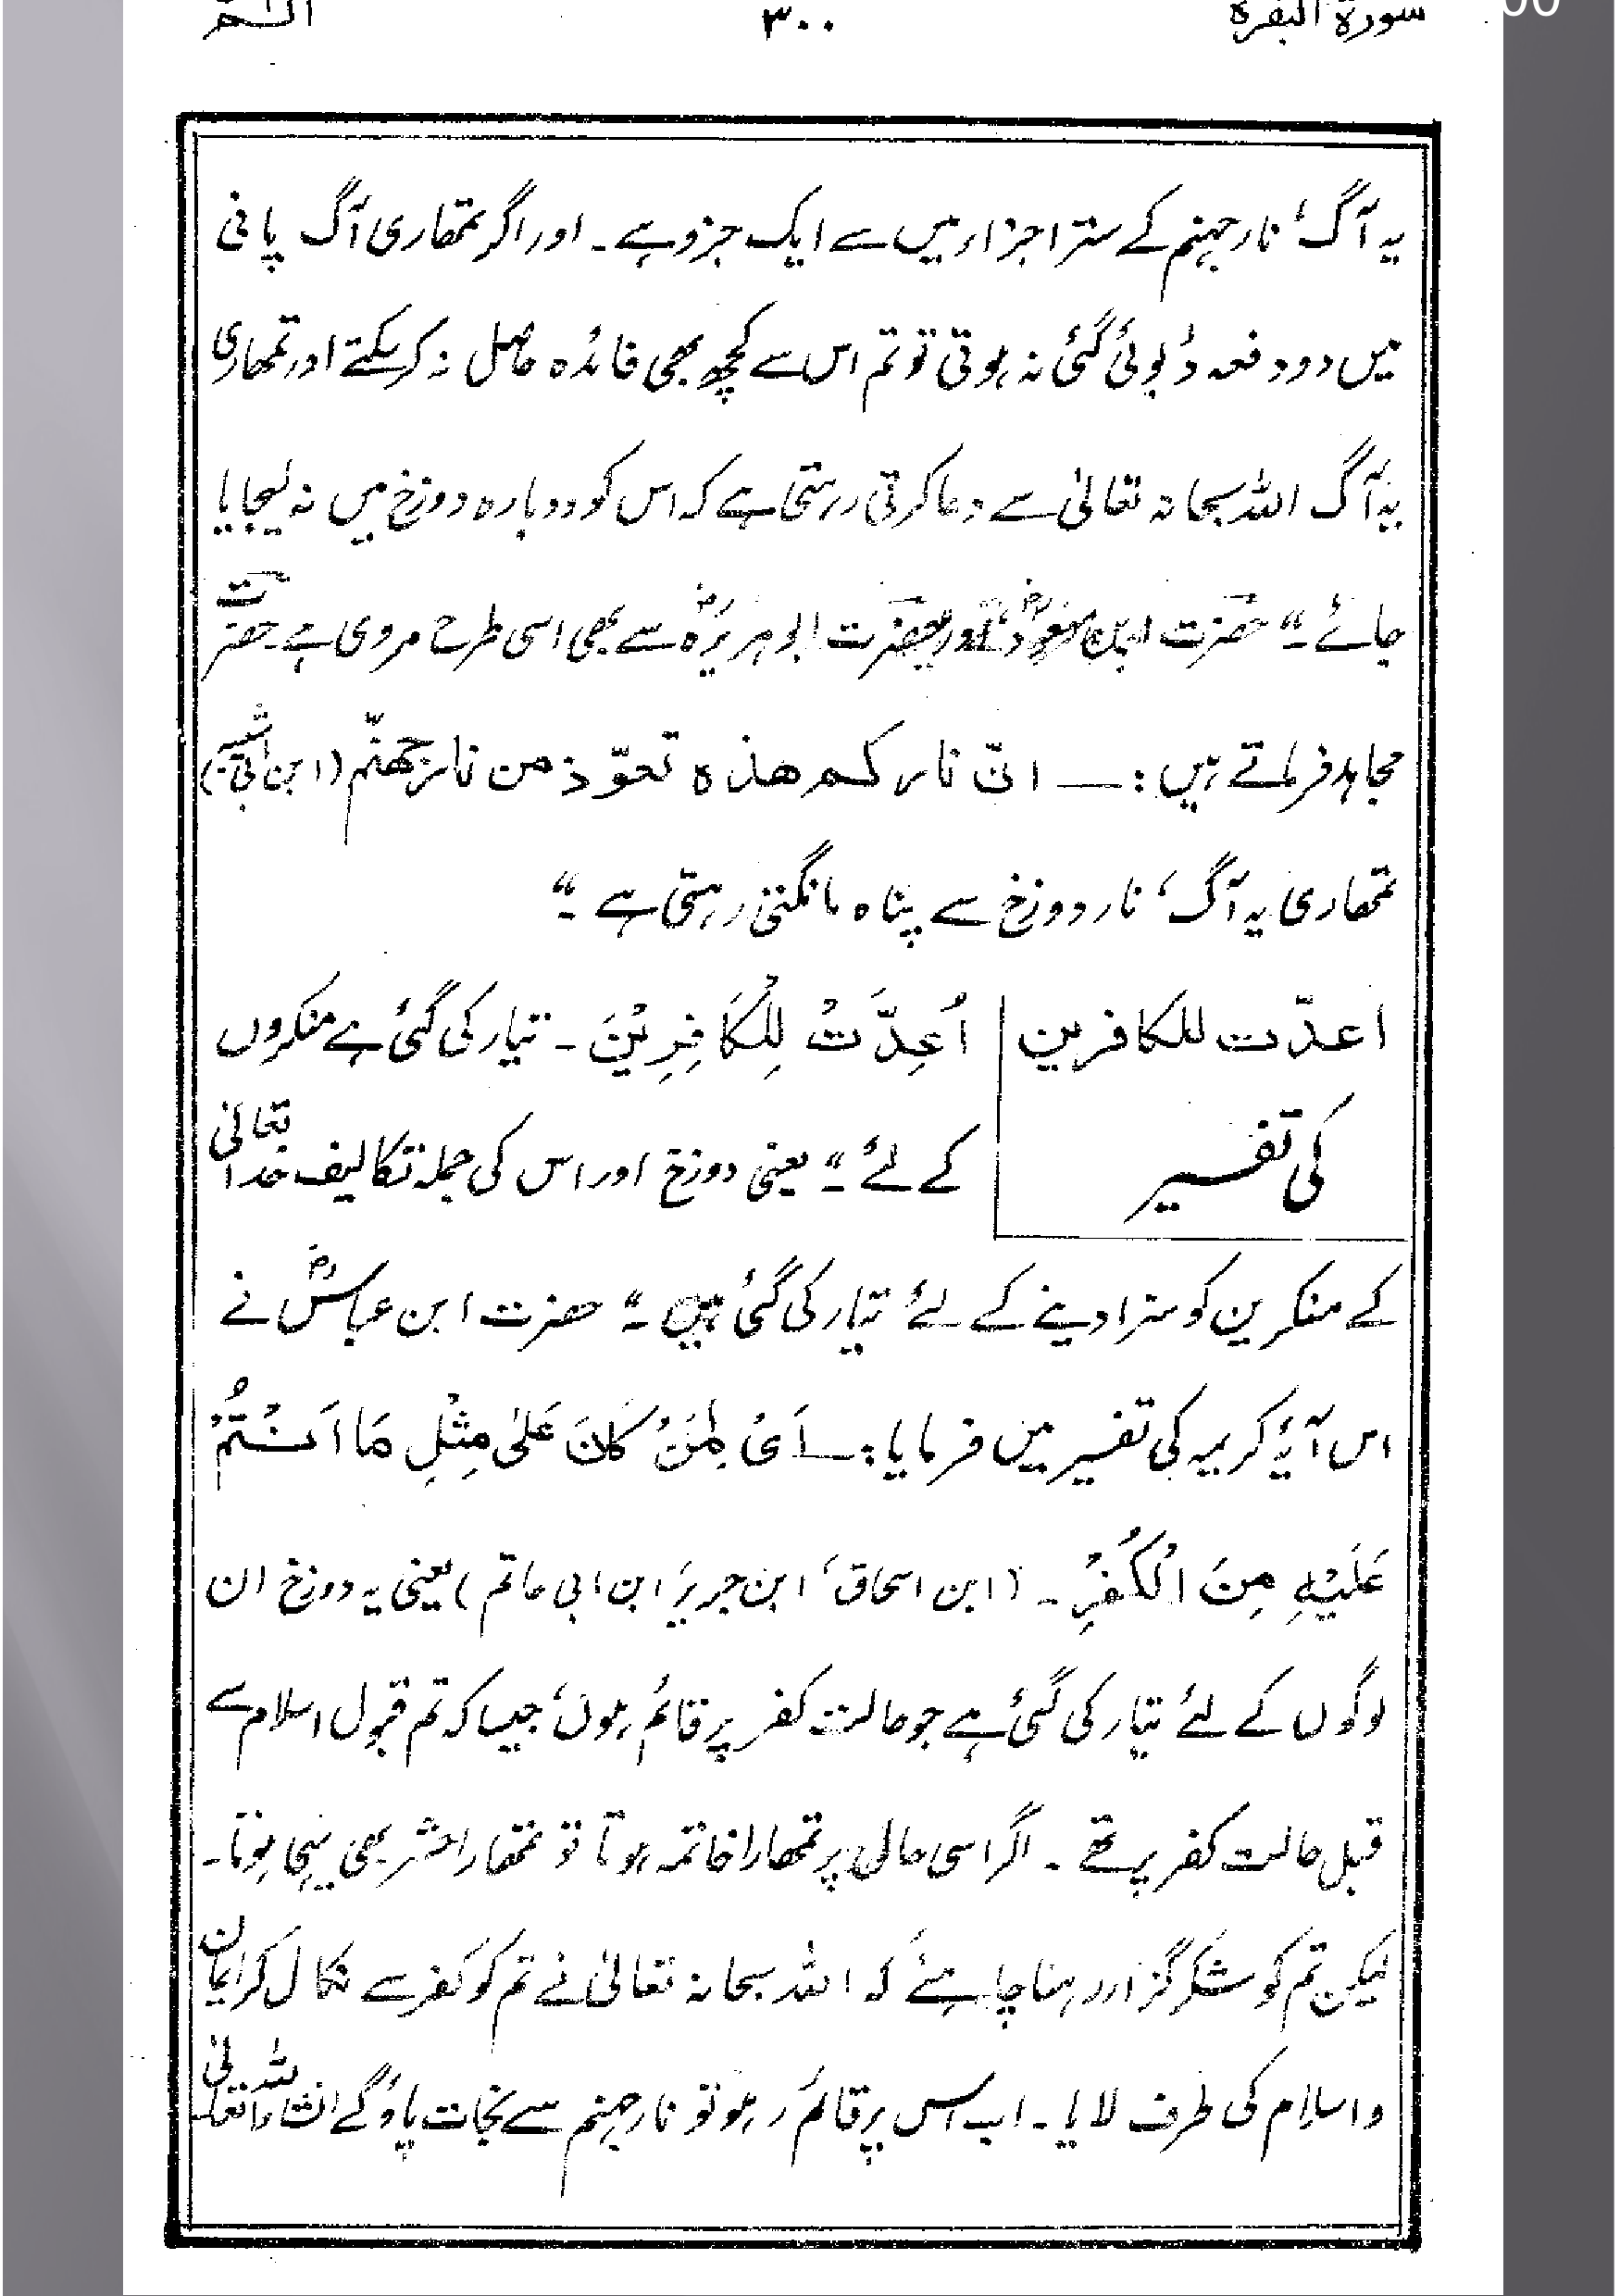 سورة البقرة ۳۰۰ الـــمّ
یہ آگ، نار جہنم کے ستر اجزاء میں سے ایک جزو ہے۔ اور اگر تمھاری آگ پانی
میں دو دفعہ ڈبوئی گئی نہ ہوتی تو تم اس سے کچھ بھی فائدہ حاصل نہ کر سکتے اور تمھاری
یہ آگ اللہ سبحانہ تعالیٰ سے دعا کرتی رہتی ہے کہ اس کو دوبارہ دوزخ میں نہ لیجایا
جائے۔“ حضرت ابن مسعودؓ اور حضرت ابو ہریرہؓ سے بھی اسی طرح مروی ہے۔ حضرت
مجاہد فرماتے ہیں :— انّ نارکم ھذہ تعوّذ من نار جھنّم (ابن ابی شیبہ)
تمھاری یہ آگ، نار دوزخ سے پناہ مانگتی رہتی ہے۔“
اعدّت للکافرین
کی تفسیر
اُعِدَّتْ لِلْکَافِرِیْنَ۔ تیار کی گئی ہے منکروں
کے لئے۔“ یعنی دوزخ اور اس کی جملہ تکالیف خدا تعالیٰ
کے منکرین کو سزا دینے کے لئے تیار کی گئی ہیں۔“ حضرت ابن عباسؓ نے
اس آیۂ کریمہ کی تفسیر میں فرمایا :— اَیْ لِمَنْ کَانَ عَلیٰ مِثْلِ مَا اَنْتُمْ
عَلَیْہِ مِنَ الْکُفْرِ۔ (ابن اسحاق، ابن جریر، ابن ابی حاتم) یعنی یہ دوزخ ان
لوگوں کے لئے تیار کی گئی ہے جو حالت کفر پر قائم ہوں، جیسا کہ تم قبول اسلام سے
قبل حالت کفر پر تھے۔ اگر اسی حال پر تمھارا خاتمہ ہوتا تو تمھارا حشر بھی یہی ہوتا۔
لیکن تم کو شکر گزار رہنا چاہئے کہ اللہ سبحانہ تعالیٰ نے تم کو کفر سے نکال کر ایمان
و اسلام کی طرف لایا۔ اب اس پر قائم رہو تو نار جہنم سے نجات پاؤ گے انشاء اللہ تعالیٰ